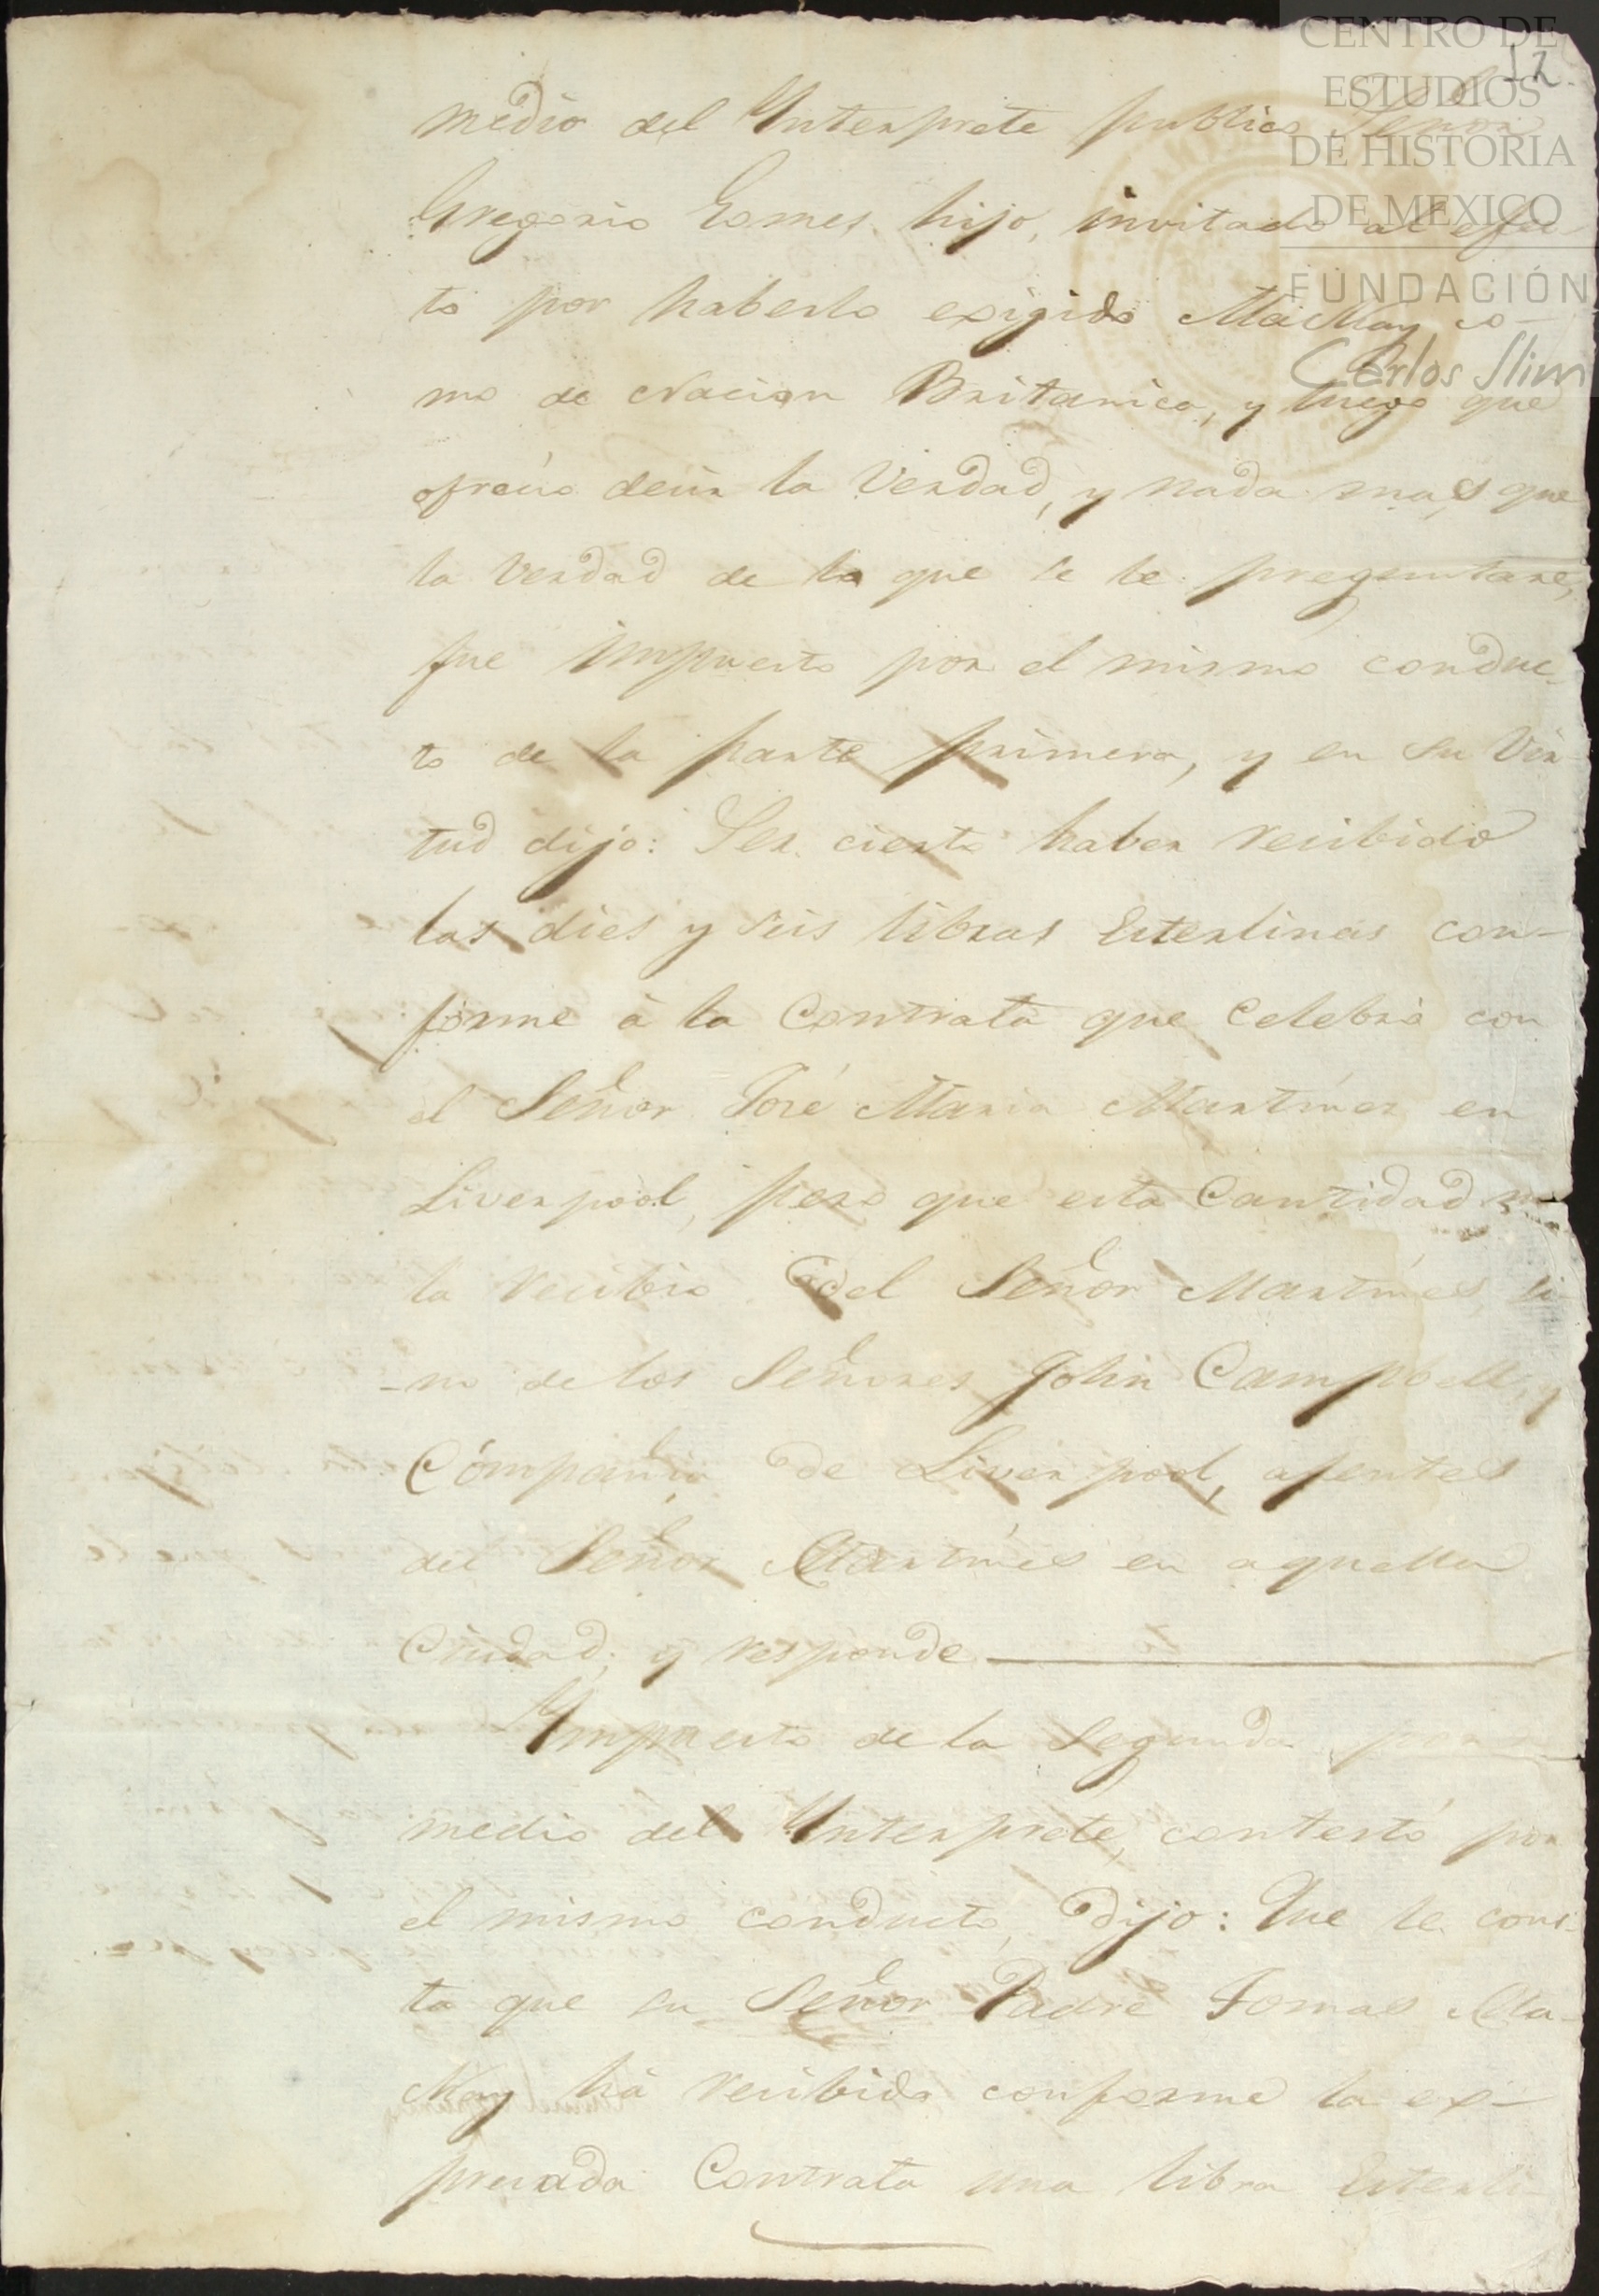 12
CENTRO DE
ESTUDIOS
DE HISTORIA
DE MEXICO
FUNDACIÓN
Carlos Slim
medio del Ynterprete publico Señor
Gregorio Gomes hijo, invitado al efec-
to por haberlo exigido MacKay co-
mo de Nacion Britanica, y luego que
ofrecio decir la Verdad, y nada mas que
la Verdad de lo que se le preguntare,
fue impuesto por el mismo conduc-
to de la parte primera, y en su Vir-
tud dijo: Ser cierto haber recibido
las dies y seis libras Esterlinas con-
forme à la Contrata que celebrò con
el Señor José Maria Martínez en
Liverpool, pero que esta Cantidad no
la recibio del Señor Martínes, si-
-no de los Señores John Campbell, y
Compañia de Liverpool, ajentes
del Señor Martínes en aquella
Ciudad; y responde
Ympuesto de la segunda por
medio del Ynterprete, contestó por
el mismo conducto, dijo: Que le cons-
ta que su Señor Padre Tomas Ma-
cKay hà recibido conforme la ex-
presada Contrata una libra Esterli-